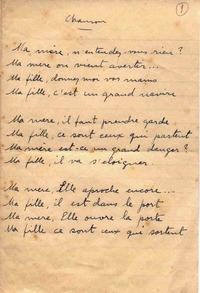 Chanson
1
Ma mère, n'entendez-vous rien ?
Ma mère on vient avertir...
Ma fille, donnez-moi vos mains
Ma fille, c'est un grand navire
Ma mère, il faut prendre garde
Ma fille, ce sont ceux qui partent
Ma mère est-ce un grand danger ?
Ma fille, il va s'éloigner
Ma mère, Elle approche encore...
Ma fille, il est dans le port
Ma mère, Elle ouvre la porte
Ma fille ce sont ceux qui sortent